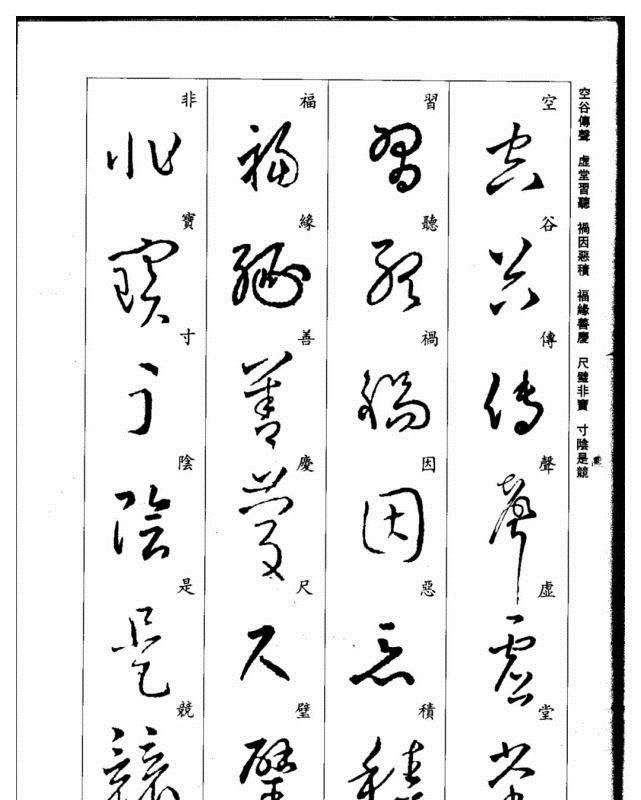 空谷傳聲 虛堂習聽 禍因惡積 福緣善慶 尺璧非寶 寸陰是競
空谷傳聲虛堂
習聽禍因惡積
福緣善慶尺璧
非寶寸陰是競